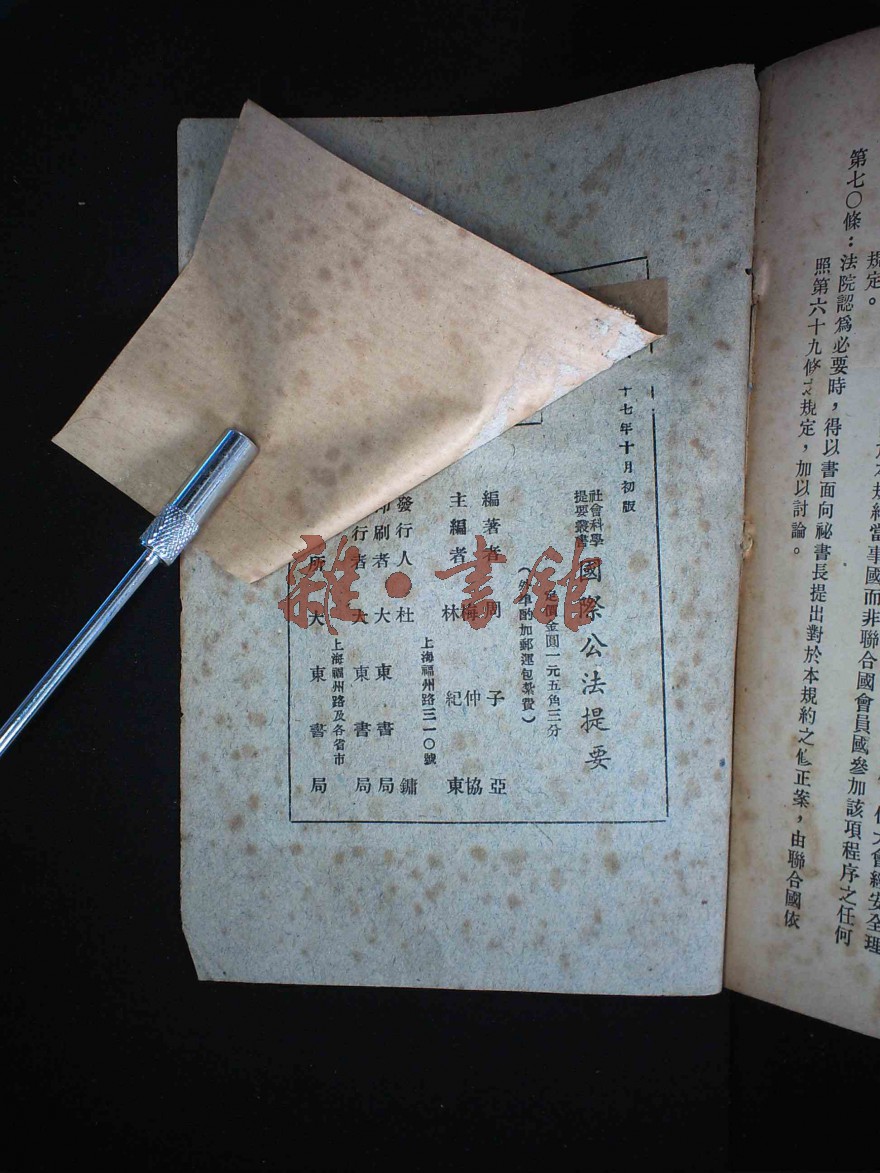 大會經安全理
本規約當事國而非聯合國會員國參加該項程序之任何
規定。
第七〇條：法院認爲必要時，得以書面向祕書長提出對於本規約之修正案，由聯合國依
照第六十九條之規定，加以討論。
十七年十月初版
社會科學
提要叢書
國際公法提要
定價金圓一元五角三分
（外埠酌加郵運包紮費）
編著者 周子亞
主編者 梅仲協
林紀東
發行人 杜鏞
上海福州路三一〇號
印刷者 大東書局
行者 大東書局
上海福州路及各省市
所 大東書局
雜·書館